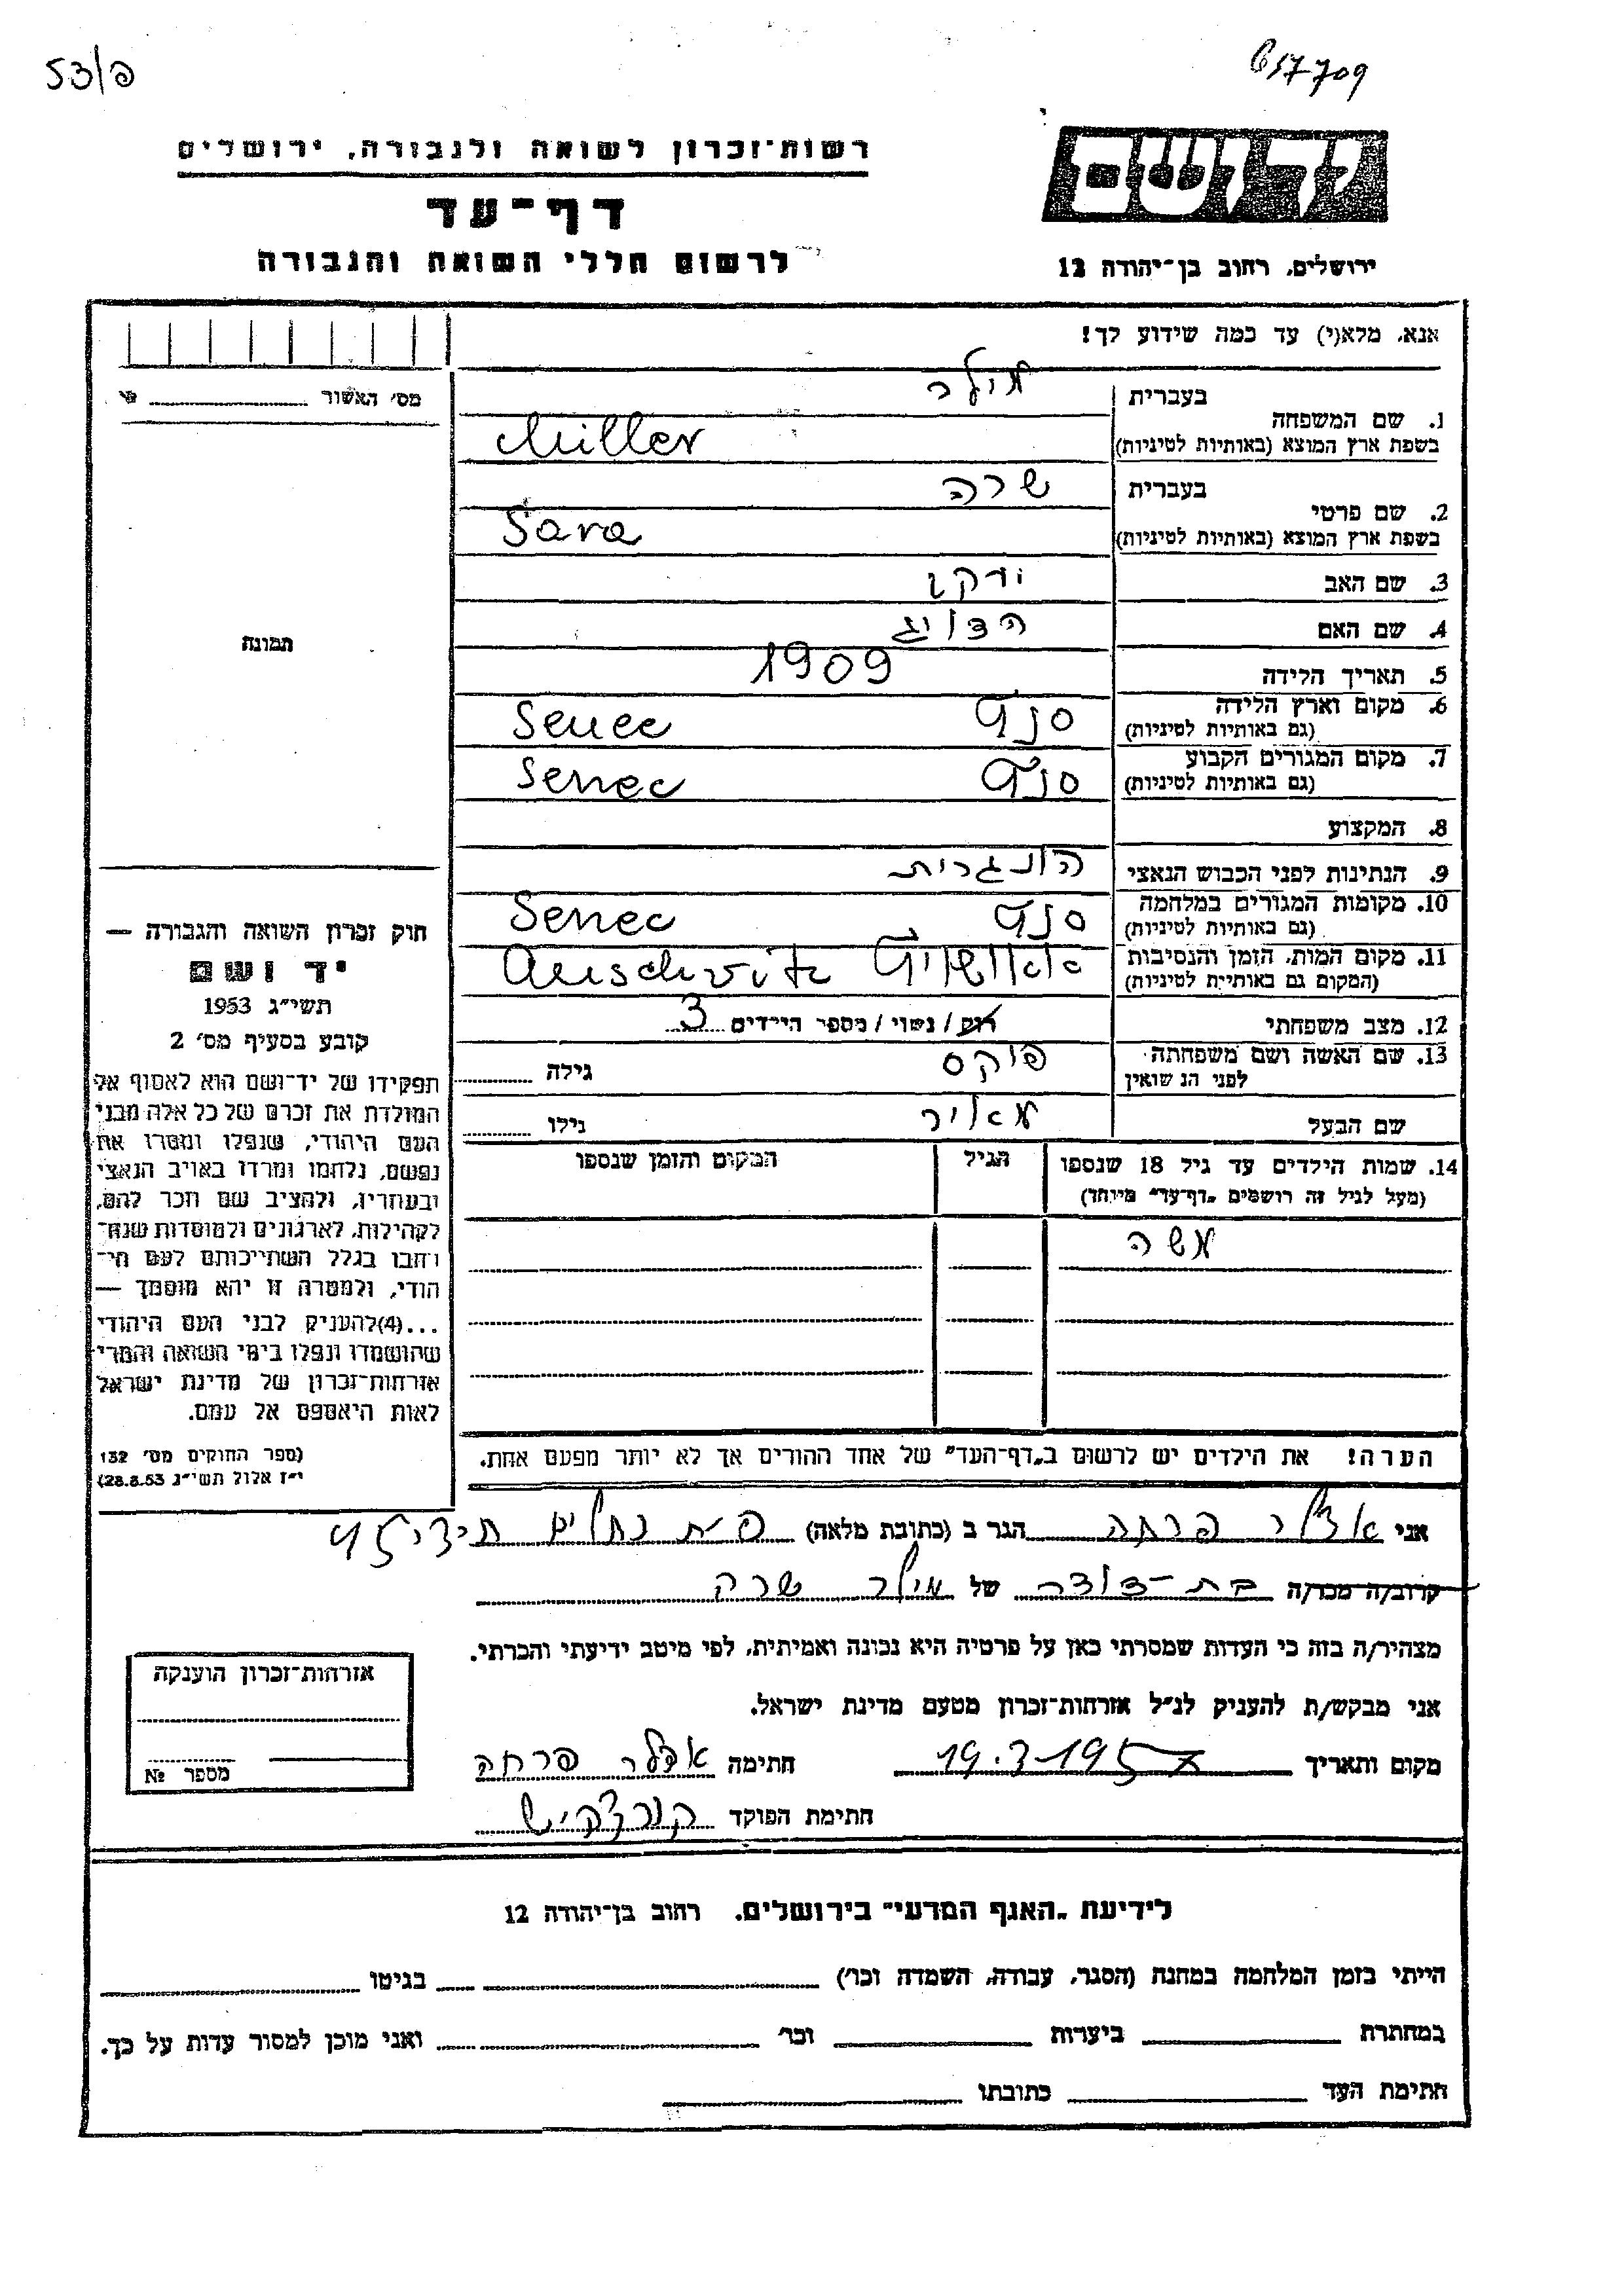 53/פ
617709
יד ושם
ירושלים, רחוב בן־יהודה 12
רשות־זכרון לשואה ולגבורה, ירושלים
דף־עד
לרשום חללי השואה והגבורה
אנא, מלא(י) עד כמה שידוע לך!
מס׳ האשור
בעברית מילר
1. שם המשפחה
בשפת ארץ המוצא (באותיות לטיניות) Miller
בעברית שרה
2. שם פרטי
בשפת ארץ המוצא (באותיות לטיניות) Sara
3. שם האב
4. שם האם
5. תאריך הלידה 1909
6. מקום וארץ הלידה סנץ Senec
(גם באותיות לטיניות)
7. מקום המגורים הקבוע סנץ Senec
(גם באותיות לטיניות)
8. המקצוע
9. הנתינות לפני הכבוש הנאצי הונגרית
10. מקומות המגורים במלחמה סנץ Senec
(גם באותיות לטיניות)
11. מקום המות, הזמן והנסיבות אאושויץ Auschvitz
(המקום גם באותיות לטיניות)
12. מצב משפחתי רווק / נשוי / מספר הילדים 3
13. שם האשה ושם משפחתה פוקס גילה
לפני הנשואין
שם הבעל מאיר גילו
14. שמות הילדים עד גיל 18 שנספו הגיל המקום והזמן שנספו
(מעל לגיל זה רושמים „דף־עד” מיוחד)
משה
הערה! את הילדים יש לרשום ב„דף־העד” של אחד ההורים אך לא יותר מפעם אחת.
תמונה
חוק זכרון השואה והגבורה —
יד ושם
תשי״ג 1953
קובע בסעיף מס׳ 2
תפקידו של יד־ושם הוא לאסוף אל
המולדת את זכרם של כל אלה מבני
העם היהודי, שנפלו ומסרו את
נפשם, נלחמו ומרדו באויב הנאצי
ובעוזריו, ולהציב שם וזכר להם,
לקהילות, לארגונים ולמוסדות שנח־
רבו בגלל השתייכותם לעם הי־
הודי, ולמטרה זו יהא מוסמך —
...(4)להעניק לבני העם היהודי
שהושמדו ונפלו בימי השואה והמרי
אזרחות־זכרון של מדינת ישראל
לאות היאספם אל עמם.
(ספר החוקים מס׳ 132
י״ז אלול תשי״ג 28.8.53)
אני אדלר פרחה הגר ב (כתובת מלאה) פ״ת
קרוב/ה מכר/ה בת־דודה של מילר שרה
מצהיר/ה בזה כי העדות שמסרתי כאן על פרטיה היא נכונה ואמיתית, לפי מיטב ידיעתי והכרתי.
אני מבקש/ת להעניק לנ״ל אזרחות־זכרון מטעם מדינת ישראל.
מקום ותאריך 19.7.1957 חתימה אדלר פרחה
חתימת הפוקד
אזרחות־זכרון הוענקה
מספר №
לידיעת „האגף המדעי” בירושלים, רחוב בן־יהודה 12
הייתי בזמן המלחמה במחנה (הסגר, עבודה, השמדה וכו׳) בגיטו
במחתרת ביערות וכו׳ ואני מוכן למסור עדות על כך.
חתימת העד כתובתו